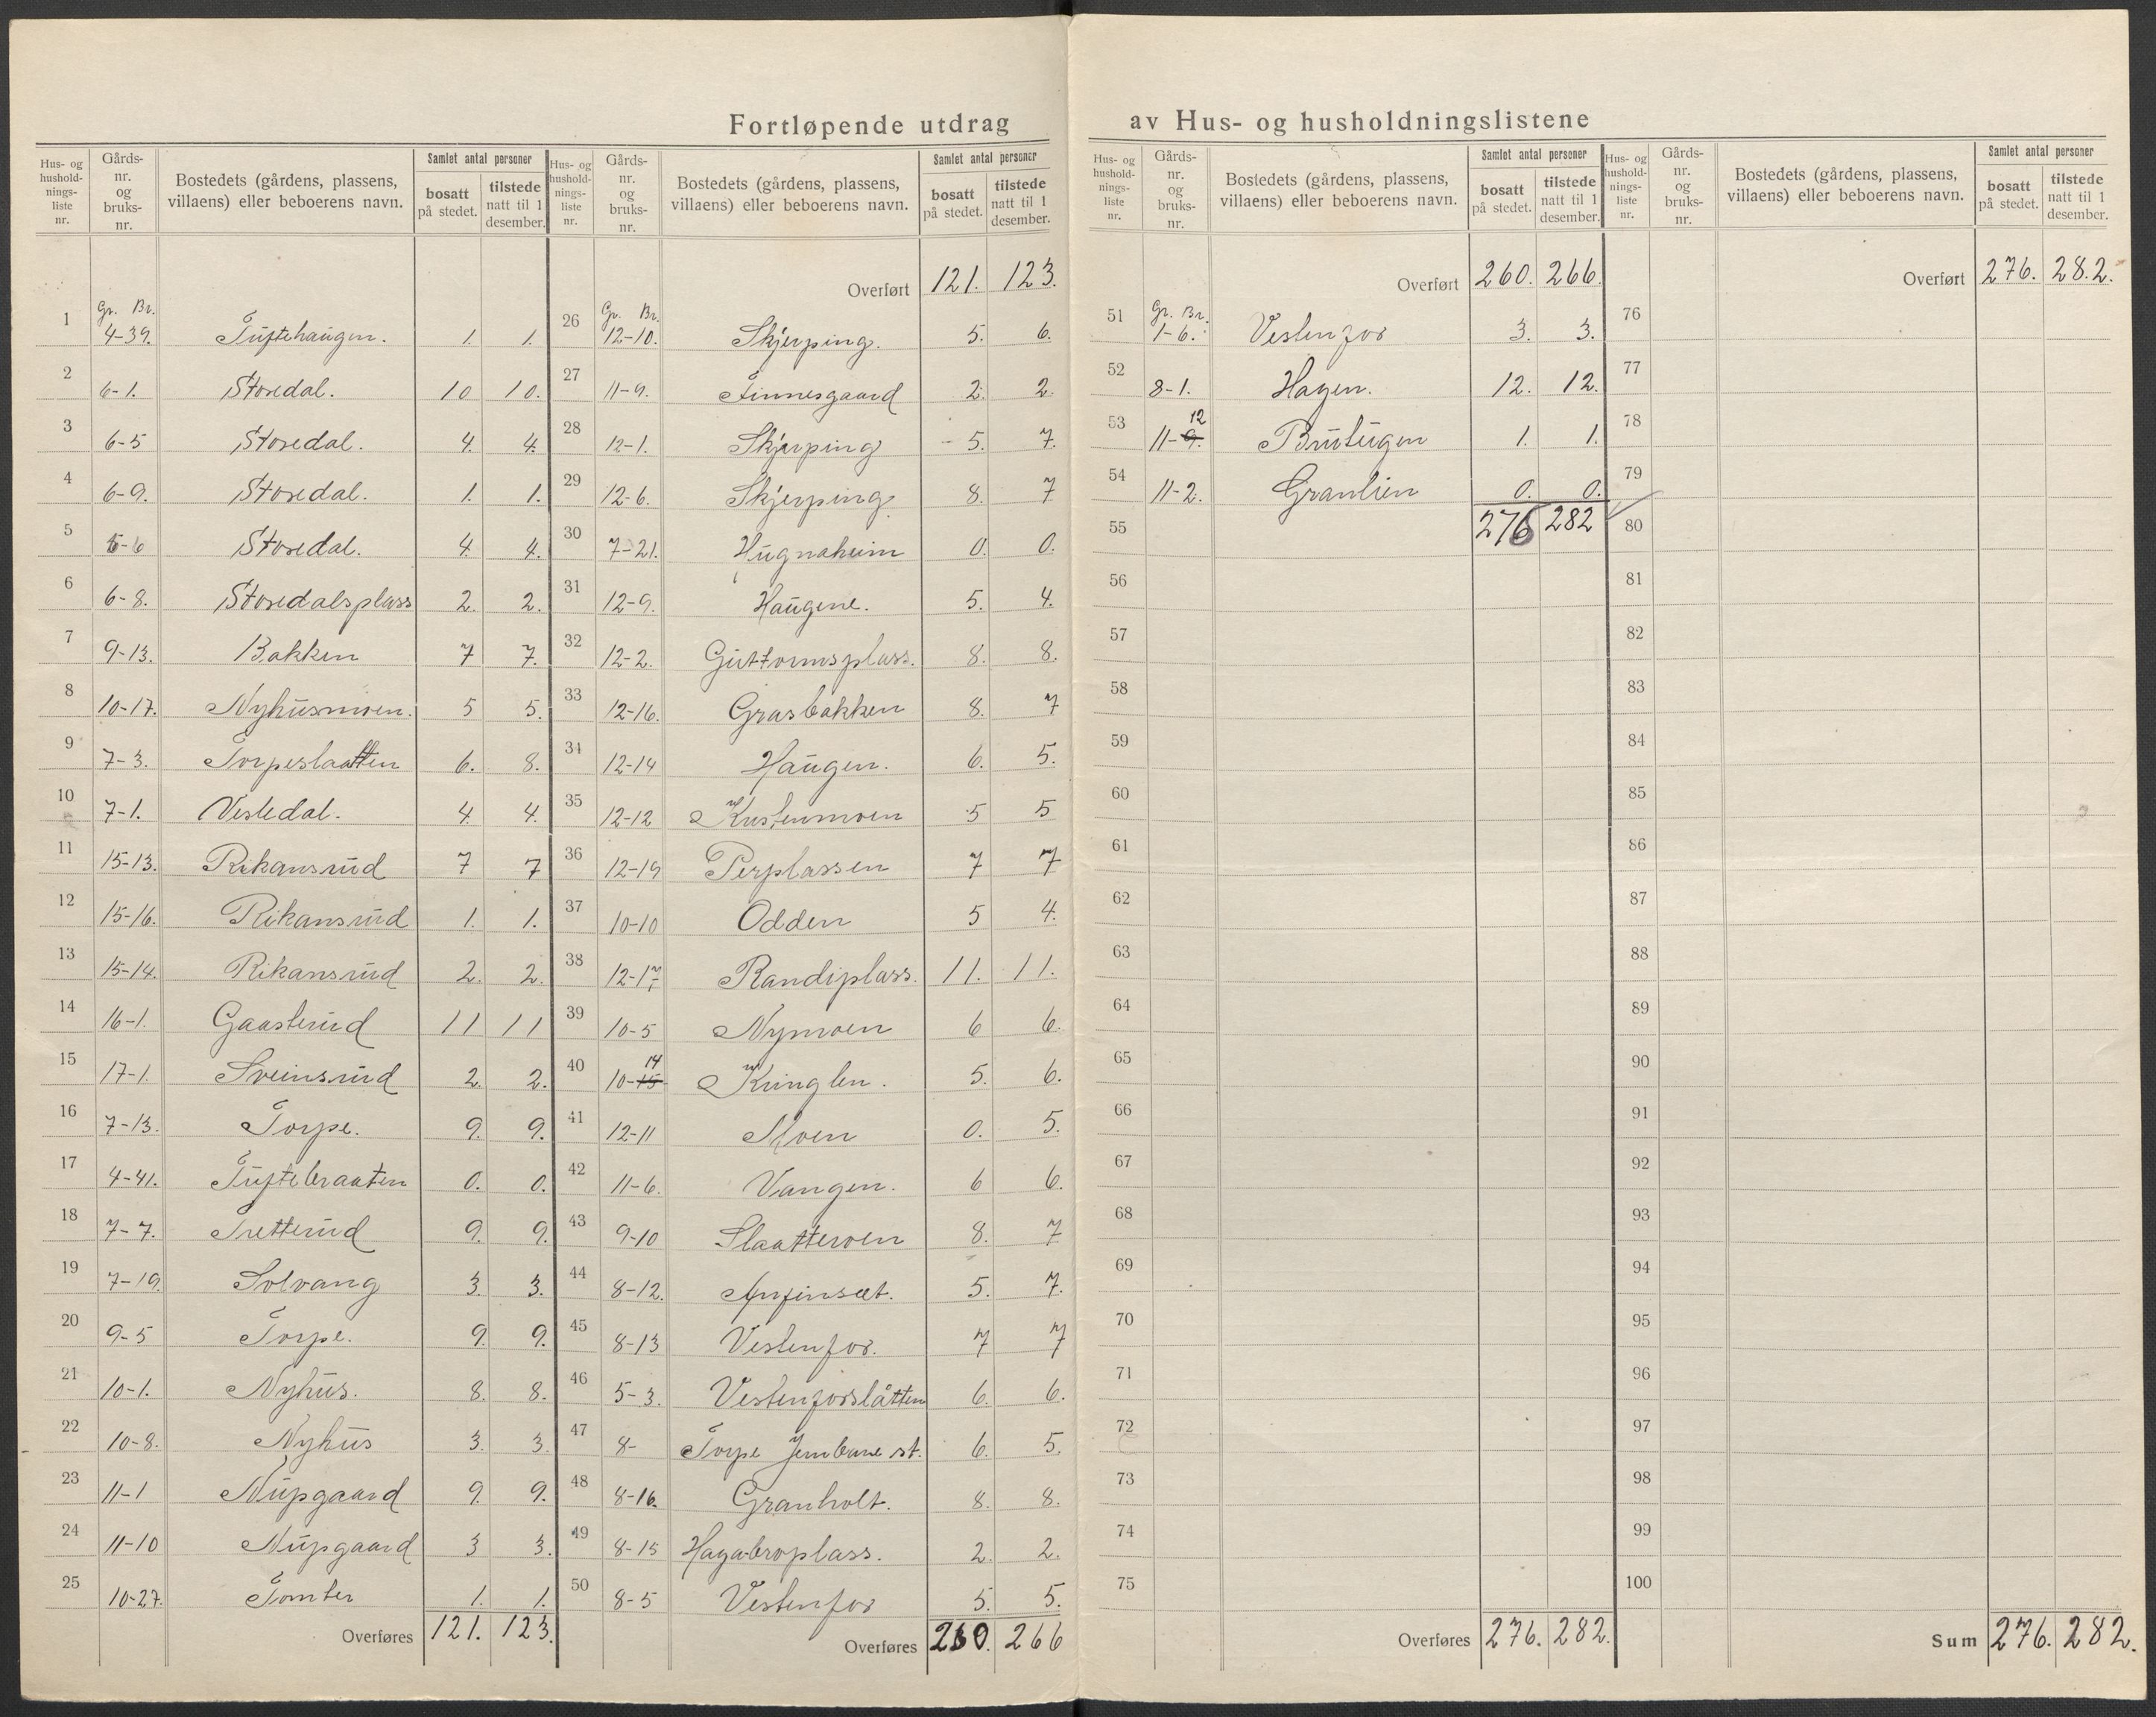 Fortløpende utdrag av Hus- og husholdningslistene
Hus- og husholdningsliste nr. | Gårds-nr. og bruks-nr. | Bostedets (gårdens, plassens, villaens) eller beboerens navn. | Samlet antal personer | bosatt på stedet. | tilstede natt til 1 desember.
Gr. Br.
1 4-39. Tuftehaugen. 1. 1.
2 6-1. Storedal. 10 10.
3 6-5 Storedal. 4. 4.
4 6-9. Storedal. 1. 1.
5 6-6 Storedal. 4. 4.
6 6-8. Storedalsplass 2. 2.
7 9-13. Bakken 7 7.
8 10-17. Nyhusmoen. 5 5.
9 7-3. Torpeslaatten 6. 8.
10 7-1. Vesledal. 4. 4.
11 15-13. Rikansrud 7 7
12 15-16. Rikansrud 1. 1.
13 15-14. Rikansrud 2. 2.
14 16-1. Gaasterud 11 11
15 17-1. Sveinsrud 2. 2.
16 7-13. Torpe. 9. 9.
17 4-41. Tuftebraaten 0. 0.
18 7-7. Tretterud 9. 9.
19 7-19. Solvang 3. 3.
20 9-5 Torpe. 9. 9.
21 10-1. Nyhus. 8. 8.
22 10-8. Nyhus 3. 3.
23 11-1 Nupgaard 9. 9.
24 11-10 Nupgaard 3 3.
25 10-27. Tomter 1. 1.
Overføres 121. 123.
Hus- og husholdningsliste nr. | Gårds-nr. og bruks-nr. | Bostedets (gårdens, plassens, villaens) eller beboerens navn. | Samlet antal personer | bosatt på stedet. | tilstede natt til 1 desember.
Overført 121. 123.
Gr. Br.
26 12-10. Skjerping. 5. 6.
27 11-9. Finnesgaard 2. 2.
28 12-1. Skjerping 5. 7.
29 12-6. Skjerping 8. 7
30 7-21. Hugnaheim 0. 0.
31 12-9. Haugene. 5. 4.
32 12-2. Guttormsplass. 8. 8.
33 12-16. Grasbakken 8. 7
34 12-14 Haugen. 6. 5.
35 12-12 Kustenmoen 5 5
36 12-19 Perplassen 7 7
37 10-10 Odden 5 4.
38 12-17 Randiplass. 11. 11.
39 10-5 Nymoen 6 6.
40 10-15 14 Kringlen. 5. 6.
41 12-11 Moen 0. 5.
42 11-6. Vangen. 6 6.
43 9-10 Slaatteroen 8. 7
44 8-12. Anfinset. 5. 7.
45 8-13 Vestenfor. 7 7
46 5-3. Vestenforslåtten 6. 6.
47 8- Torpe Jernbane st. 6. 5.
48 8-16. Granholt. 8. 8.
49 8-15 Hagabroplass. 2. 2.
50 8-5 Vestenfor 5. 5.
Overføres 260. 266
Hus- og husholdningsliste nr. | Gårds-nr. og bruks-nr. | Bostedets (gårdens, plassens, villaens) eller beboerens navn. | Samlet antal personer | bosatt på stedet. | tilstede natt til 1 desember.
Overført 260. 266.
Gr. Br.
51 1-6. Vestenfor 3. 3.
52 8-1. Hagen. 12. 12.
53 11-9. 12 Brutugen 1. 1.
54 11-2. Granlien 0. 0.
55 276 282
56
57
58
59
60
61
62
63
64
65
66
67
68
69
70
71
72
73
74
75
Overføres 276. 282.
Hus- og husholdningsliste nr. | Gårds-nr. og bruks-nr. | Bostedets (gårdens, plassens, villaens) eller beboerens navn. | Samlet antal personer | bosatt på stedet. | tilstede natt til 1 desember.
Overført 276. 282.
76
77
78
79
80
81
82
83
84
85
86
87
88
89
90
91
92
93
94
95
96
97
98
99
100
Sum 276. 282.